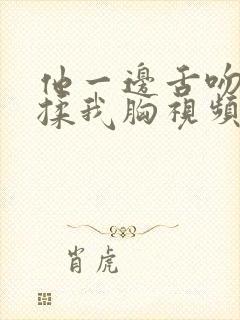 他一邊舌吻
揉我胸視頻
肖虎